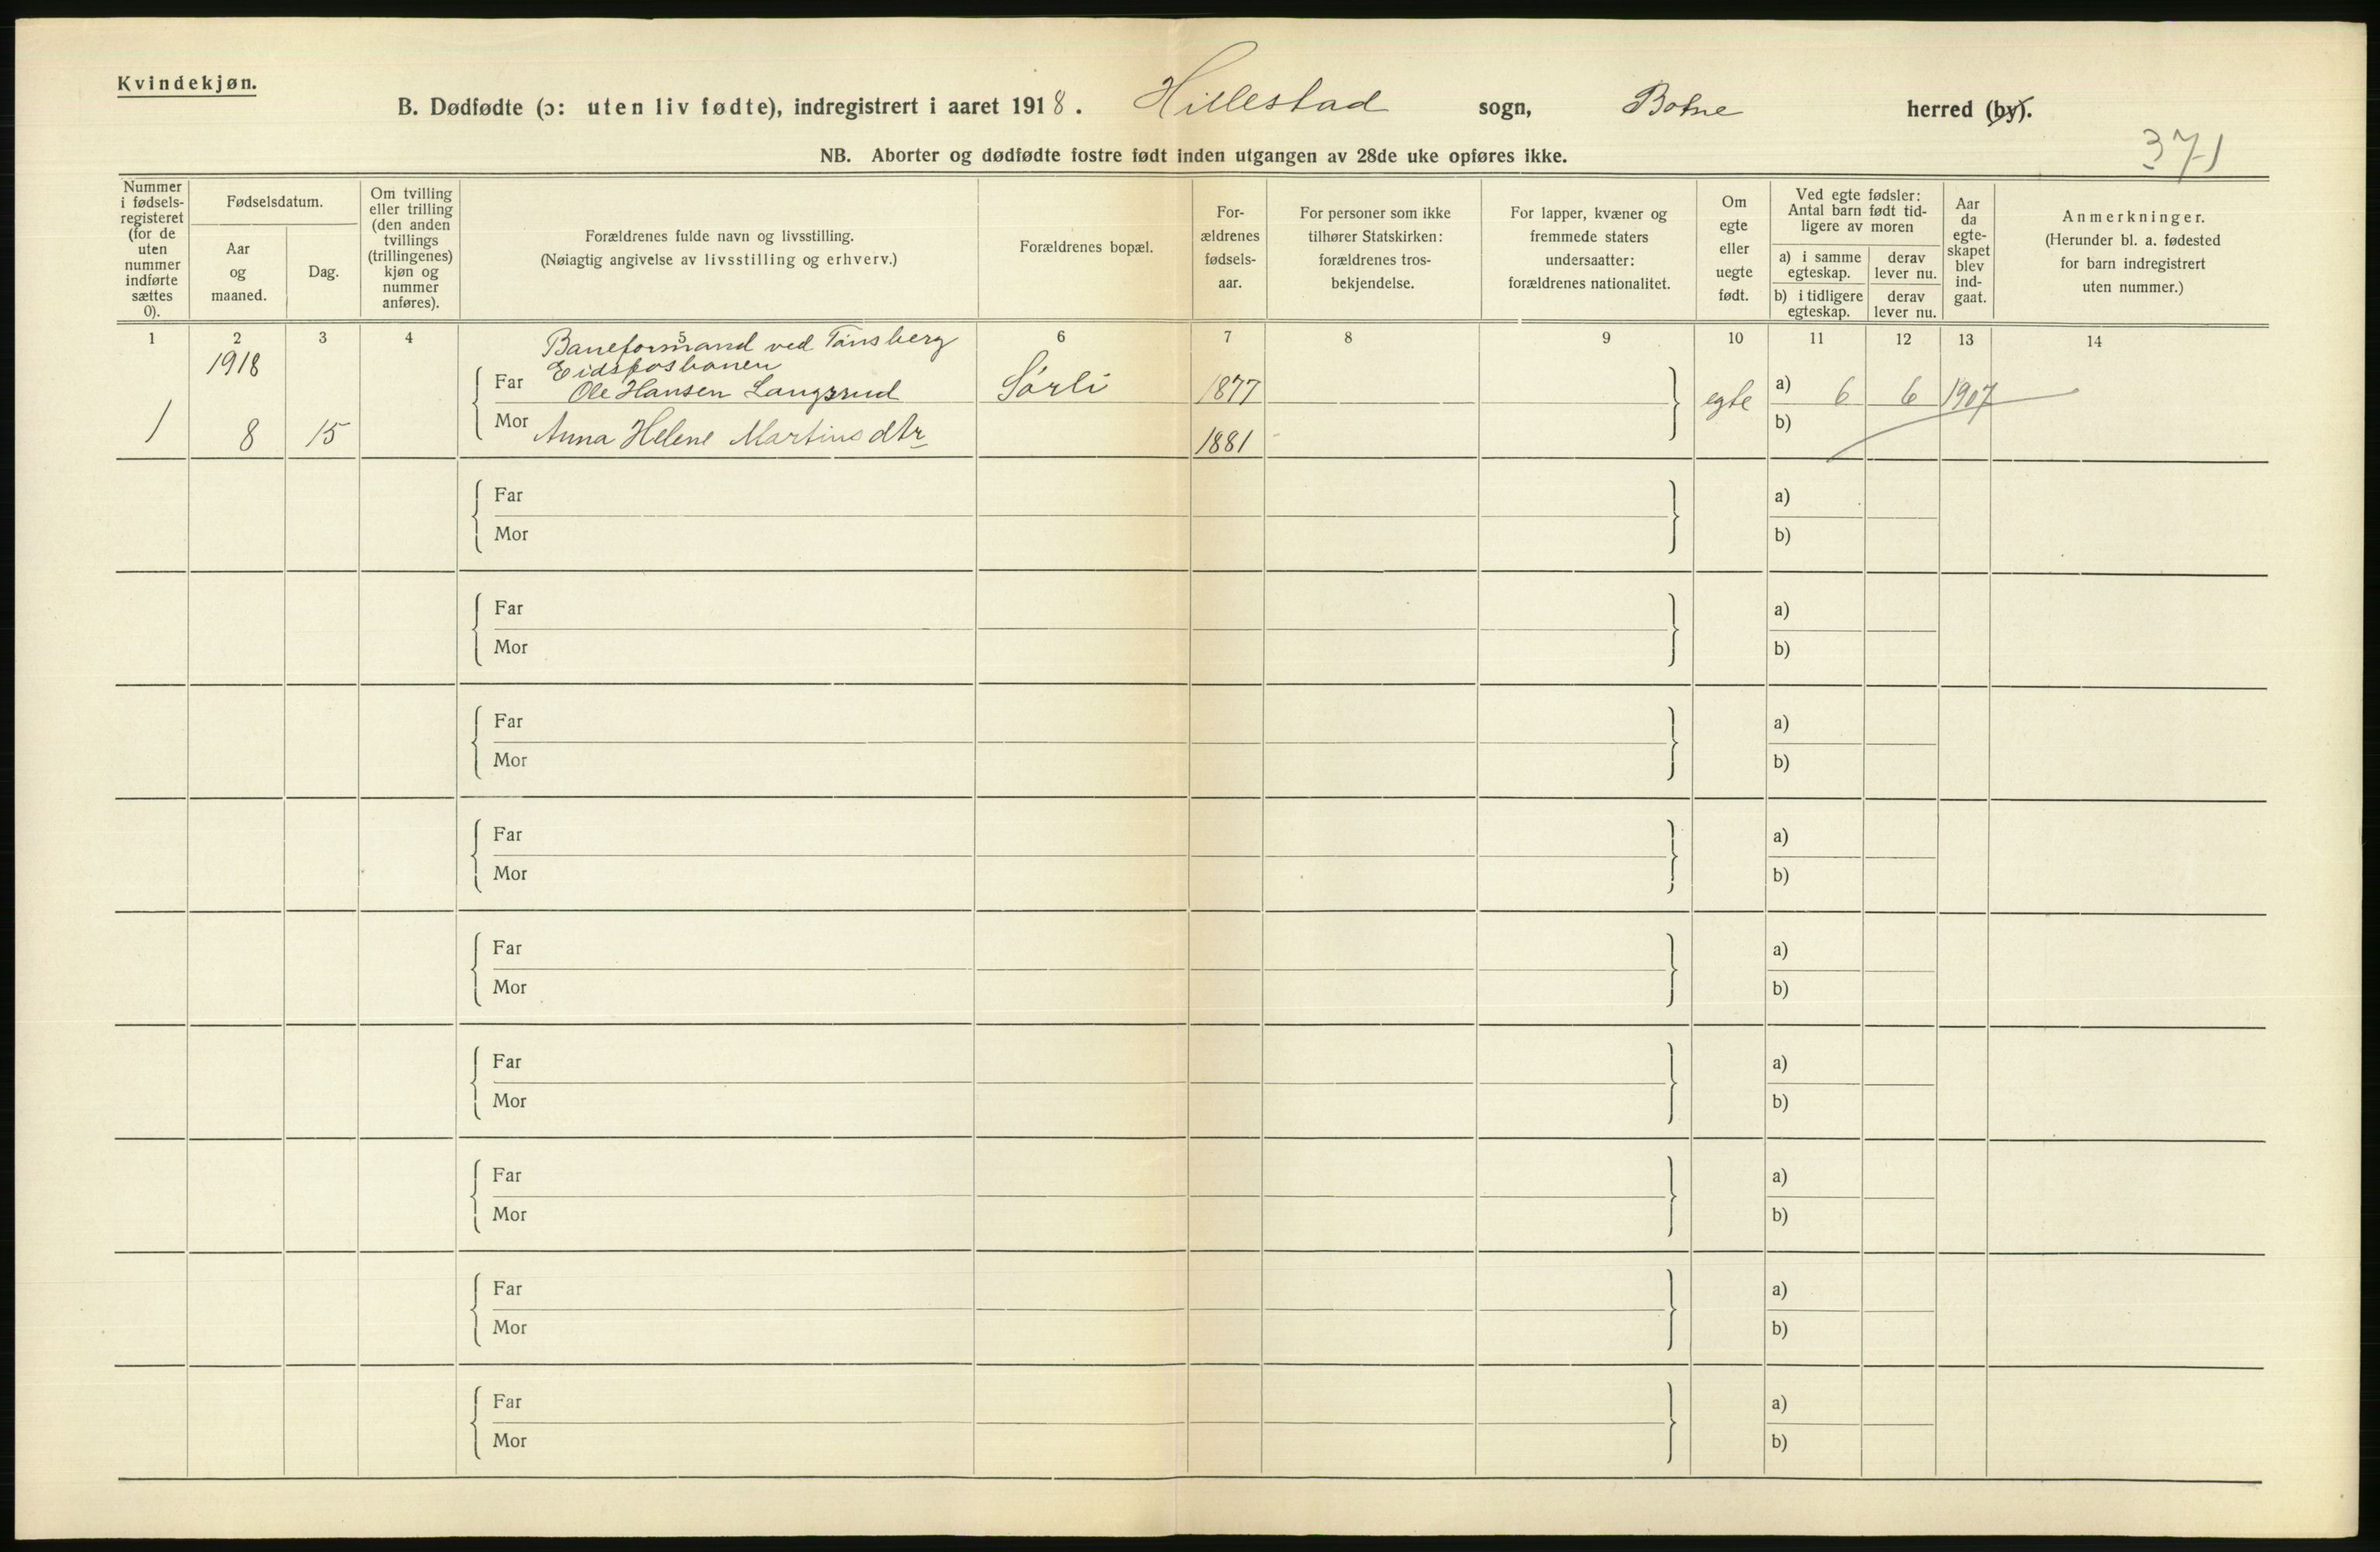 Kvindekjøn.
B. Dødfødte (ɔ: uten liv fødte), indregistrert i aaret 1918. Hillestad sogn, Botne herred (by).
371
NB. Aborter og dødfødte fostre født inden utgangen av 28de uke opføres ikke.
Nummer
i fødsels-
registeret
(for de
uten
nummer
indførte
sættes
0).
Fødselsdatum.
Aar
og
maaned.
Dag.
Om tvilling
eller trilling
(den anden
tvillings
(trillingenes)
kjøn og
nummer
anføres).
Forældrenes fulde navn og livsstilling.
(Nøiagtig angivelse av livsstilling og erhverv.)
Forældrenes bopæl.
For-
ældrenes
fødsels-
aar.
For personer som ikke
tilhører Statskirken:
forældrenes tros-
bekjendelse.
For lapper, kvæner og
fremmede staters
undersaatter:
forældrenes nationalitet.
Om
egte
eller
uegte
født.
Ved egte fødsler:
Antal barn født tid-
ligere av moren
a) i samme
egteskap.
derav
lever nu.
b) i tidligere
egteskap.
derav
lever nu.
Aar
da
egte-
skapet
blev
ind-
gaat.
Anmerkninger.
(Herunder bl. a. fødested
for barn indregistrert
uten nummer.)
1 2 3 4 5 6 7 8 9 10 11 12 13 14
1918
Baneformand ved Tønsberg
Eidsfosbanen
Far Ole Hansen Langsrud Sørli 1877 egte a) 6 6 1907
1 8 15 Mor Anna Helene Martinsdtr 1881 b)
Far a)
Mor b)
Far a)
Mor b)
Far a)
Mor b)
Far a)
Mor b)
Far a)
Mor b)
Far a)
Mor b)
Far a)
Mor b)
Far a)
Mor b)
Far a)
Mor b)